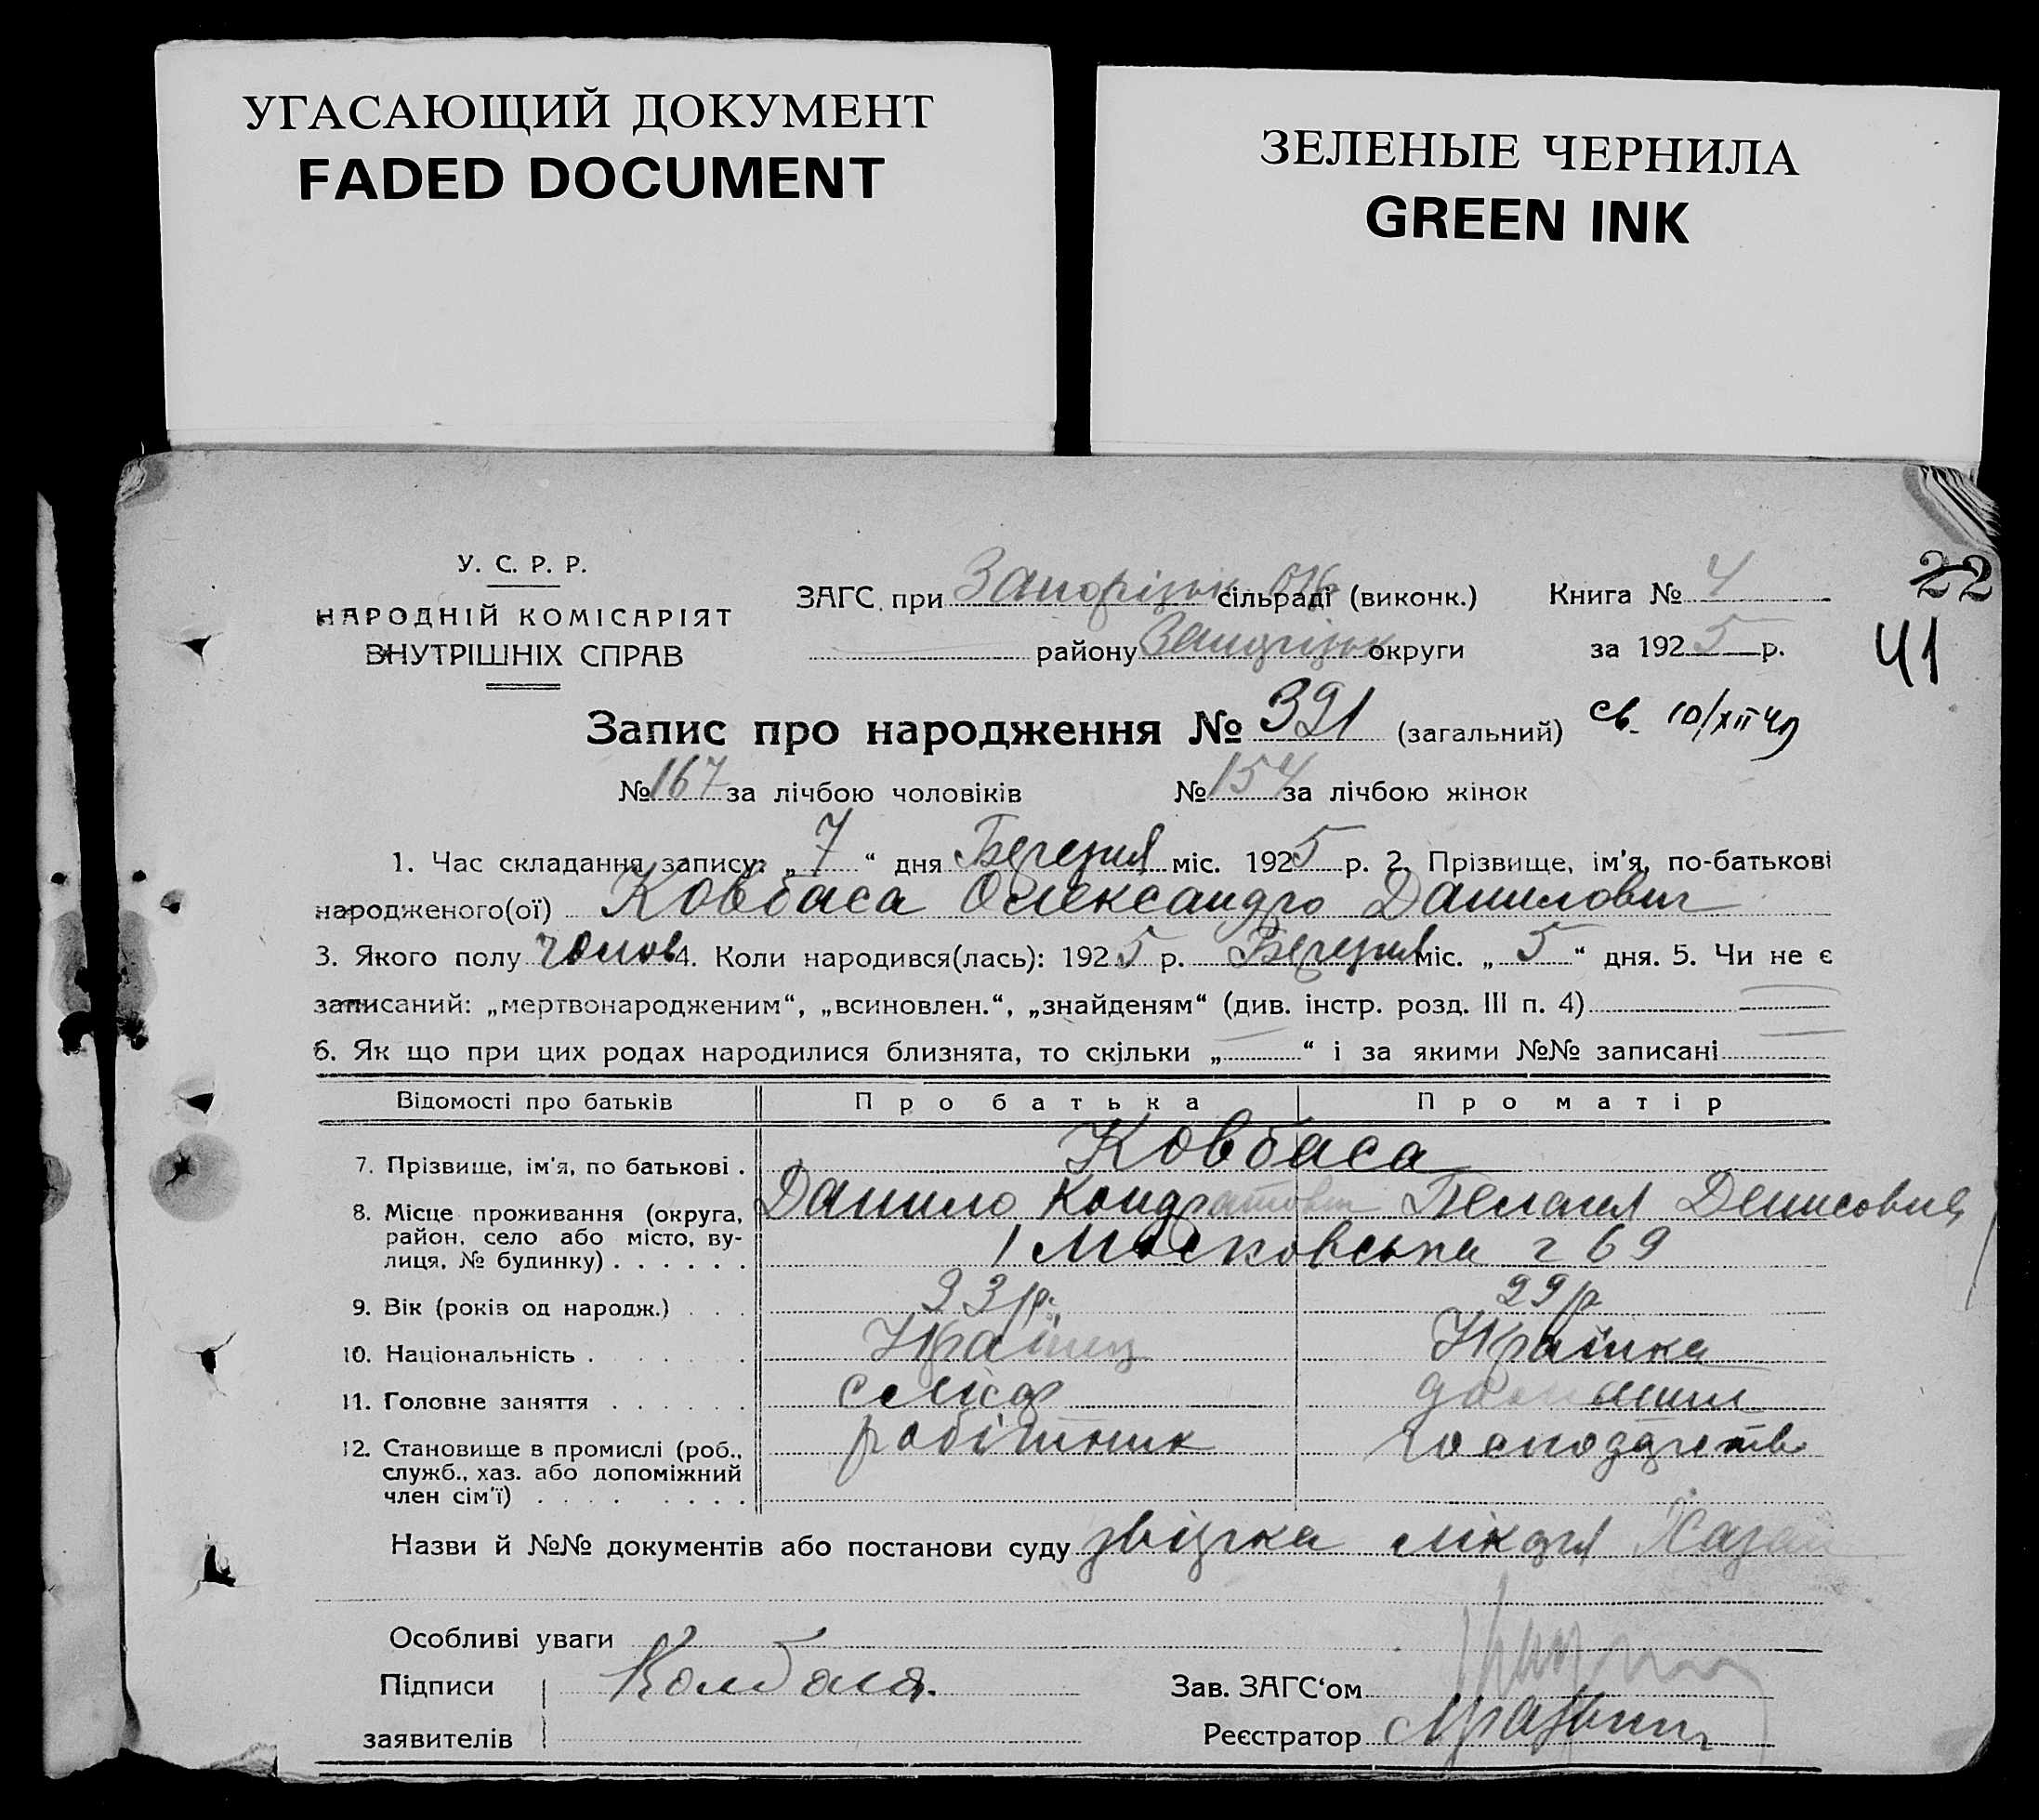 УГАСАЮЩИЙ ДОКУМЕНТ
FADED DOCUMENT
ЗЕЛЕНЫЕ ЧЕРНИЛА
GREEN INK
22
41
У. С. Р. Р.
НАРОДНІЙ КОМІСАРІЯТ
ВНУТРІШНІХ СПРАВ
ЗАГС при Запорізьк. сільраді (виконк.) Книга № 4
району Запорізьк округи за 1925 р.
Запис про народження № 391 (загальний) св. 10/XII 49
№ 167 за лічбою чоловіків № 154 за лічбою жінок
1. Час складання запису: „ 7 “ дня Березня міс. 1925 р. 2. Прізвище, ім'я, по-батькові
народженого(ої) Ковбаса Олександро Данилович
3. Якого полу чолов 4. Коли народився(лась): 1925 р. Березня міс. „ 5 “ дня. 5. Чи не є
записаний: „мертвонародженим“, „всиновлен.“, „знайденям“ (див. інстр. розд. III п. 4)
6. Як що при цих родах народилися близнята, то скільки „ “ і за якими №№ записані
Відомості про батьків Про батька Про матір
7. Прізвище, ім'я, по батькові . Ковбаса
8. Місце проживання (округа, Данило Кондратович Пелагея Денисовна
район, село або місто, ву-
лиця, № будинку) . . . . . . Московська 69
9. Вік (років од народж.) . . . 33 р. 29 р
10. Національність . . . . . . Українець Українка
11. Головне заняття . . . . . . домашнє
12. Становище в промислі (роб., робітник господарств
служб., хаз. або допоміжний
член сім'ї) . . . . . . . .
Назви й №№ документів або постанови суду звідка лікаря Хазан
Особливі уваги
Підписи Колбаса. Зав. ЗАГС'ом
заявителів Реєстратор